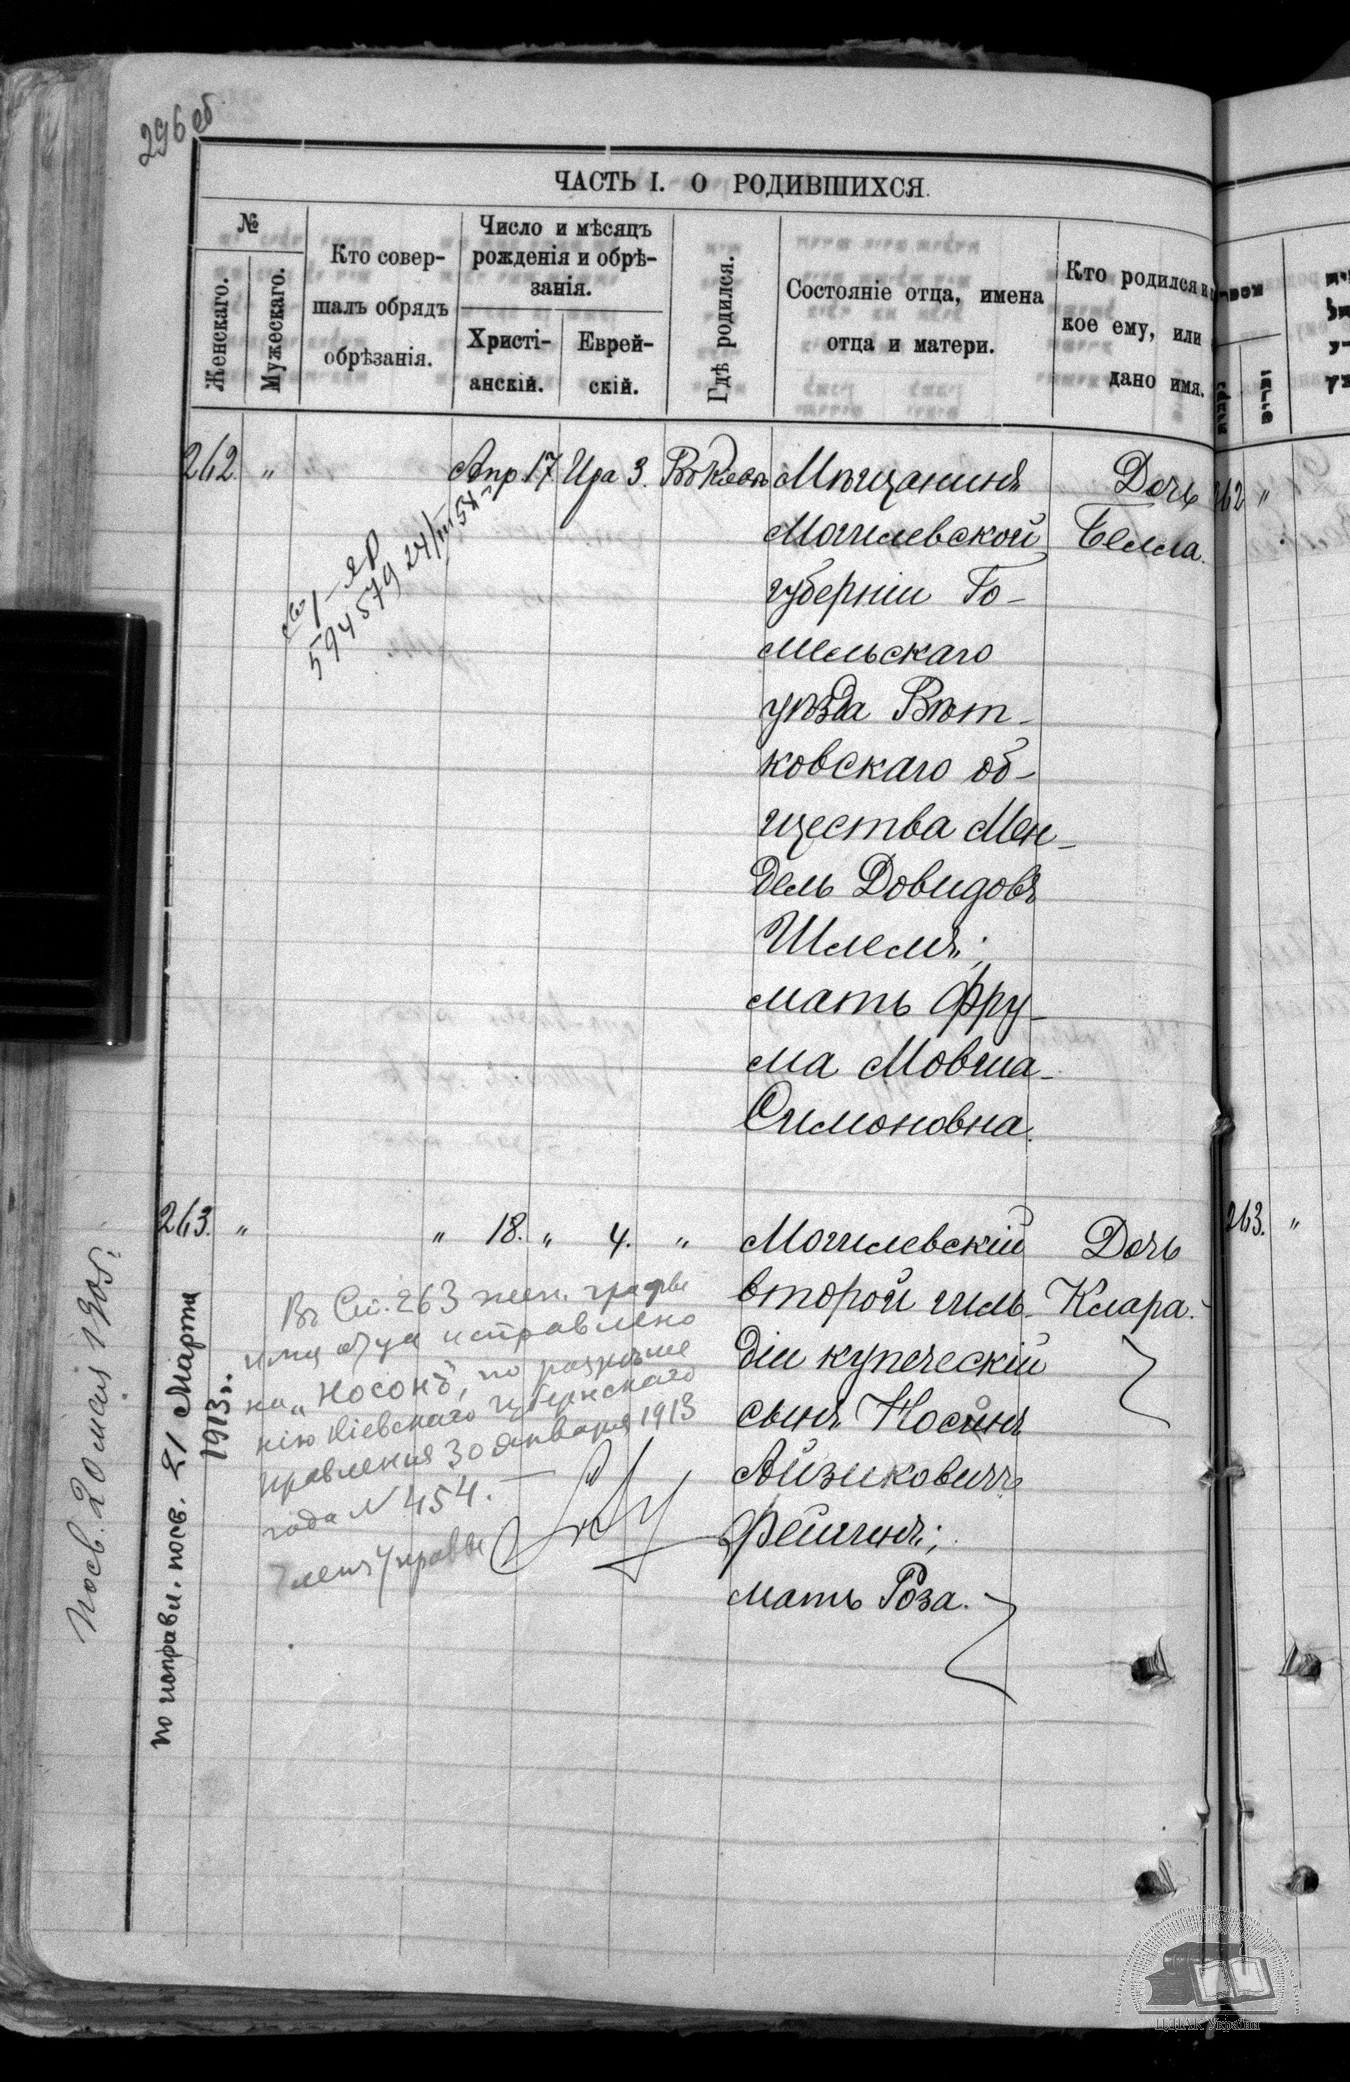 296 об
ЧАСТЬ I. О РОДИВШИХСЯ.
№
Женскаго.
Мужескаго.
Кто совер-
шалъ обрядъ
обрѣзанія.
Число и мѣсяцъ
рожденія и обрѣ-
занія.
Христі-
анскій.
Еврей-
скій.
Гдѣ родился.
Состояніе отца, имена
отца и матери.
Кто родился и
кое ему, или
дано имя.
262. " Апр 17 Ира 3. Въ Кіевѣ Мѣщанинъ Дочь
Могилевской Белла.
губерніи Го-
мельскаго
уѣзда Вѣт-
ковскаго об-
щества Мен-
дель Довидовъ
Шлемъ;
мать Фру-
ма Мовша-
Симоновна.
594579 24/III
263. " " 18. " 4. " Могилевскій Дочь
второй гиль- Клара.
діи купеческій
сынъ Носонъ
Айзиковичъ
Фейгинъ;
мать Роза.
Въ Ст. 263 жен. графы
имя отца исправлено
на „Носонъ", по разрѣше
нію Кіевскаго Губернскаго
Правленія 30 января 1913
года N 454. —
Членъ Управы
Посв. 20 1905 г.
по исправл. посв. 21 Марта
1913 г.
262 "
263. "
ЦДІАК України